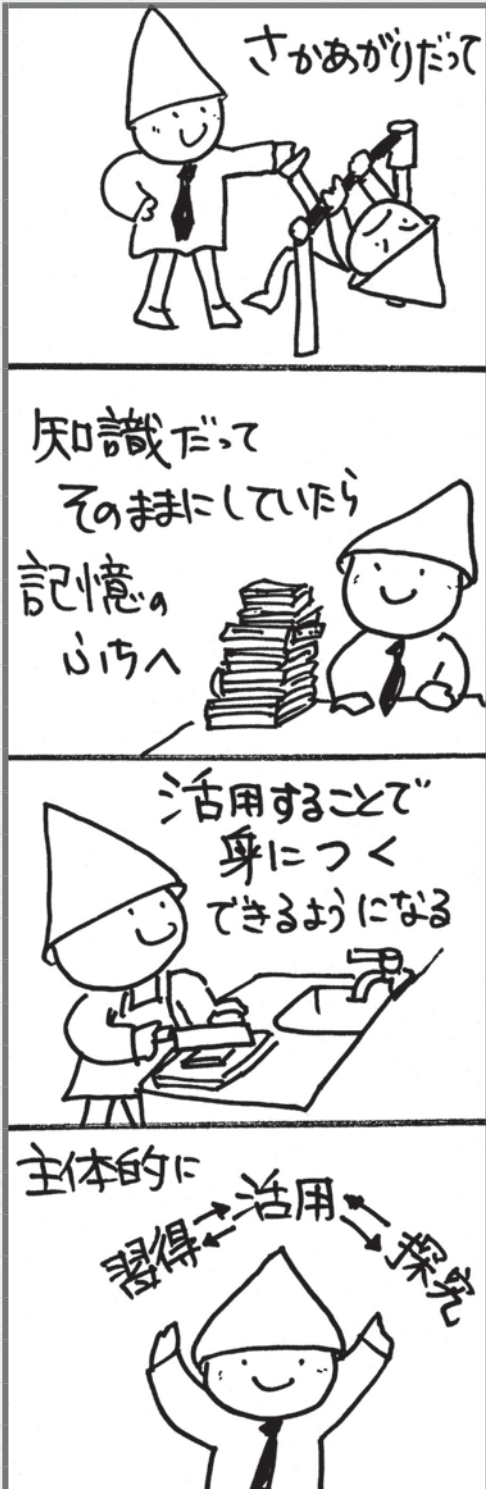 さかあがりだって
知識だって
そのままにしていたら
記憶の
ふちへ
活用することで
身につく
できるようになる
主体的に
習得 活用 探究